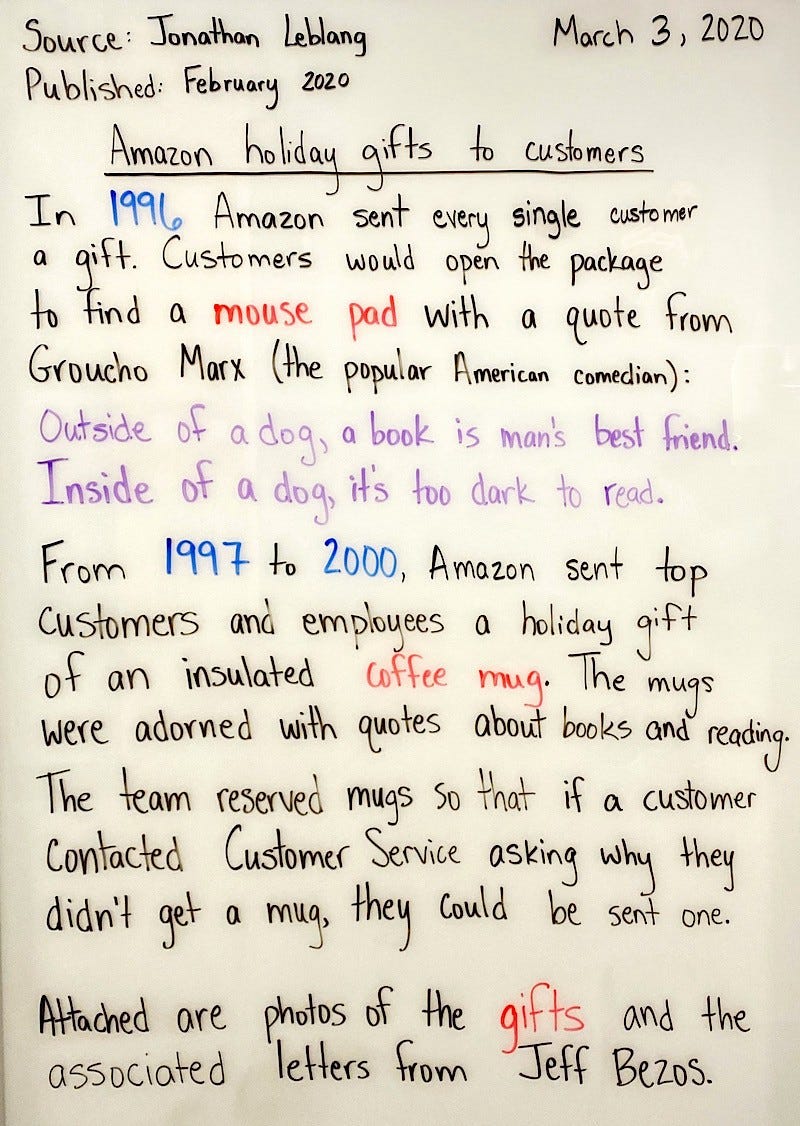 Source: Jonathan Leblang
March 3, 2020
Published: February 2020
Amazon holiday gifts to customers
In 1996 Amazon sent every single customer
a gift. Customers would open the package
to find a mouse pad with a quote from
Groucho Marx (the popular American comedian):
Outside of a dog, a book is man's best friend.
Inside of a dog, it's too dark to read.
From 1997 to 2000, Amazon sent top
customers and employees a holiday gift
of an insulated coffee mug. The mugs
were adorned with quotes about books and reading.
The team reserved mugs so that if a customer
contacted Customer Service asking why they
didn't get a mug, they could be sent one.
Attached are photos of the gifts and the
associated letters from Jeff Bezos.